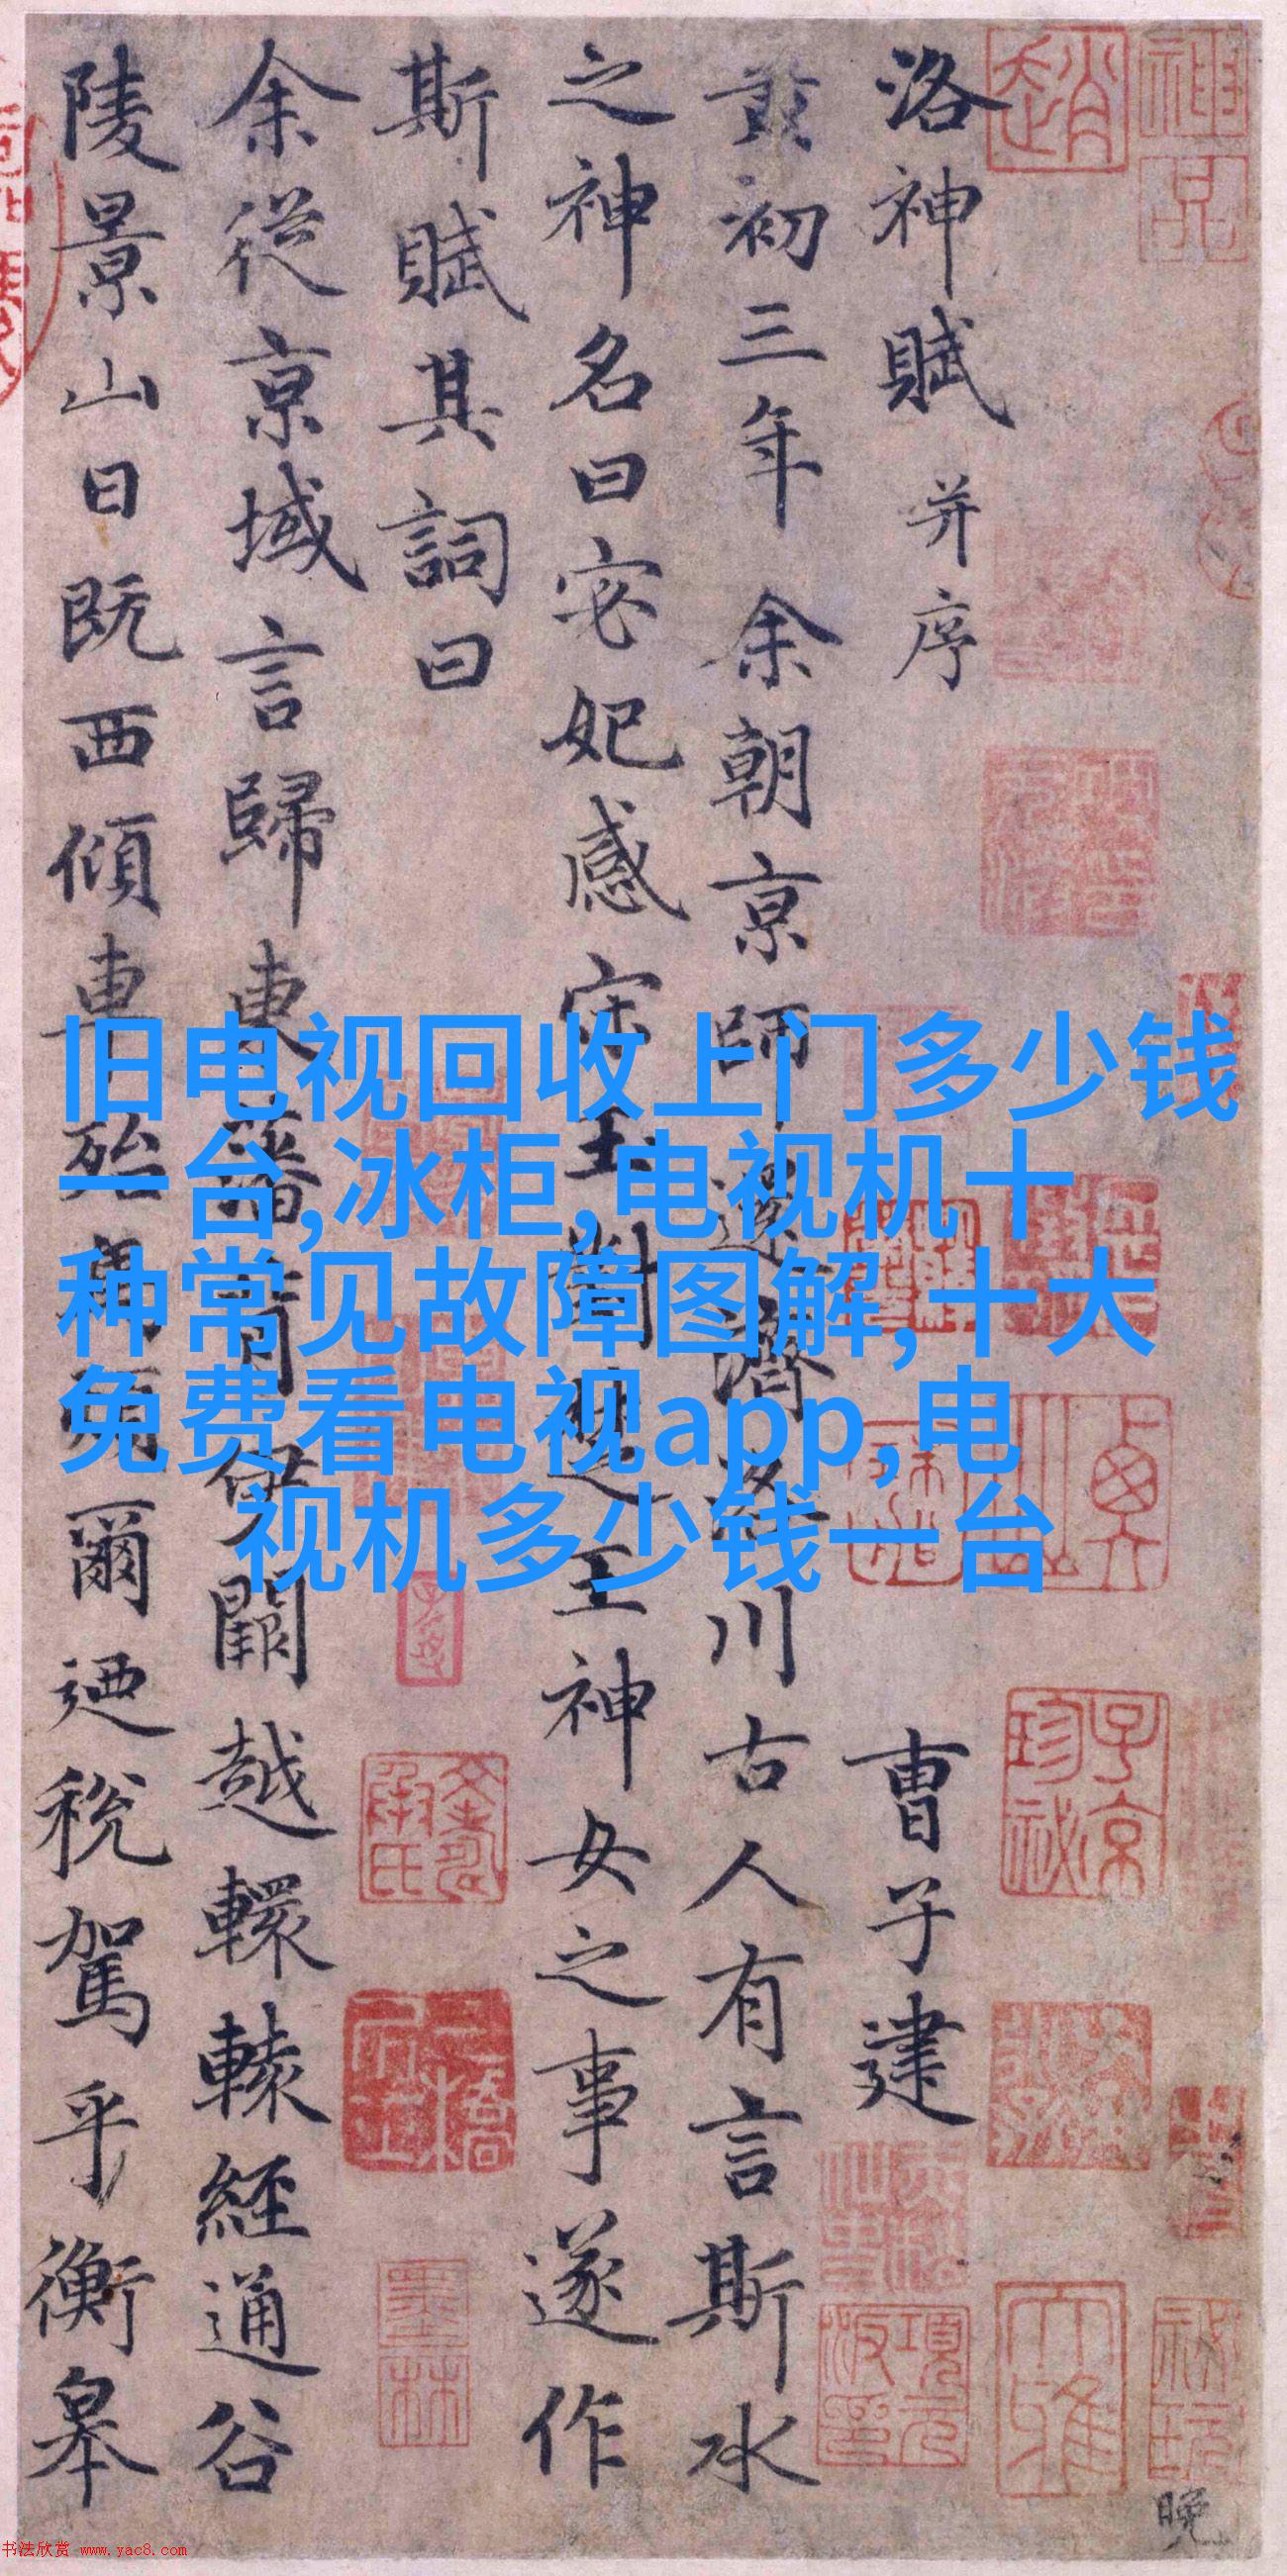 洛神賦 并序 曹子建
黃初三年余朝京師還濟洛川古人有言斯水
之神名曰宓妃感宋玉對楚王神女之事遂作
斯賦其詞曰
余從京域言歸東藩背伊闕越轘轅經通谷
陵景山日既西傾車殆馬煩爾迺稅駕乎衡皋
旧电视回收上门多少钱
一台,冰柜,电视机十
种常见故障图解,十大
免费看电视app,电
视机多少钱一台
趙
神品
子京珍秘
項元汴印
墨林
晚
书法欣赏 www.yac8.com